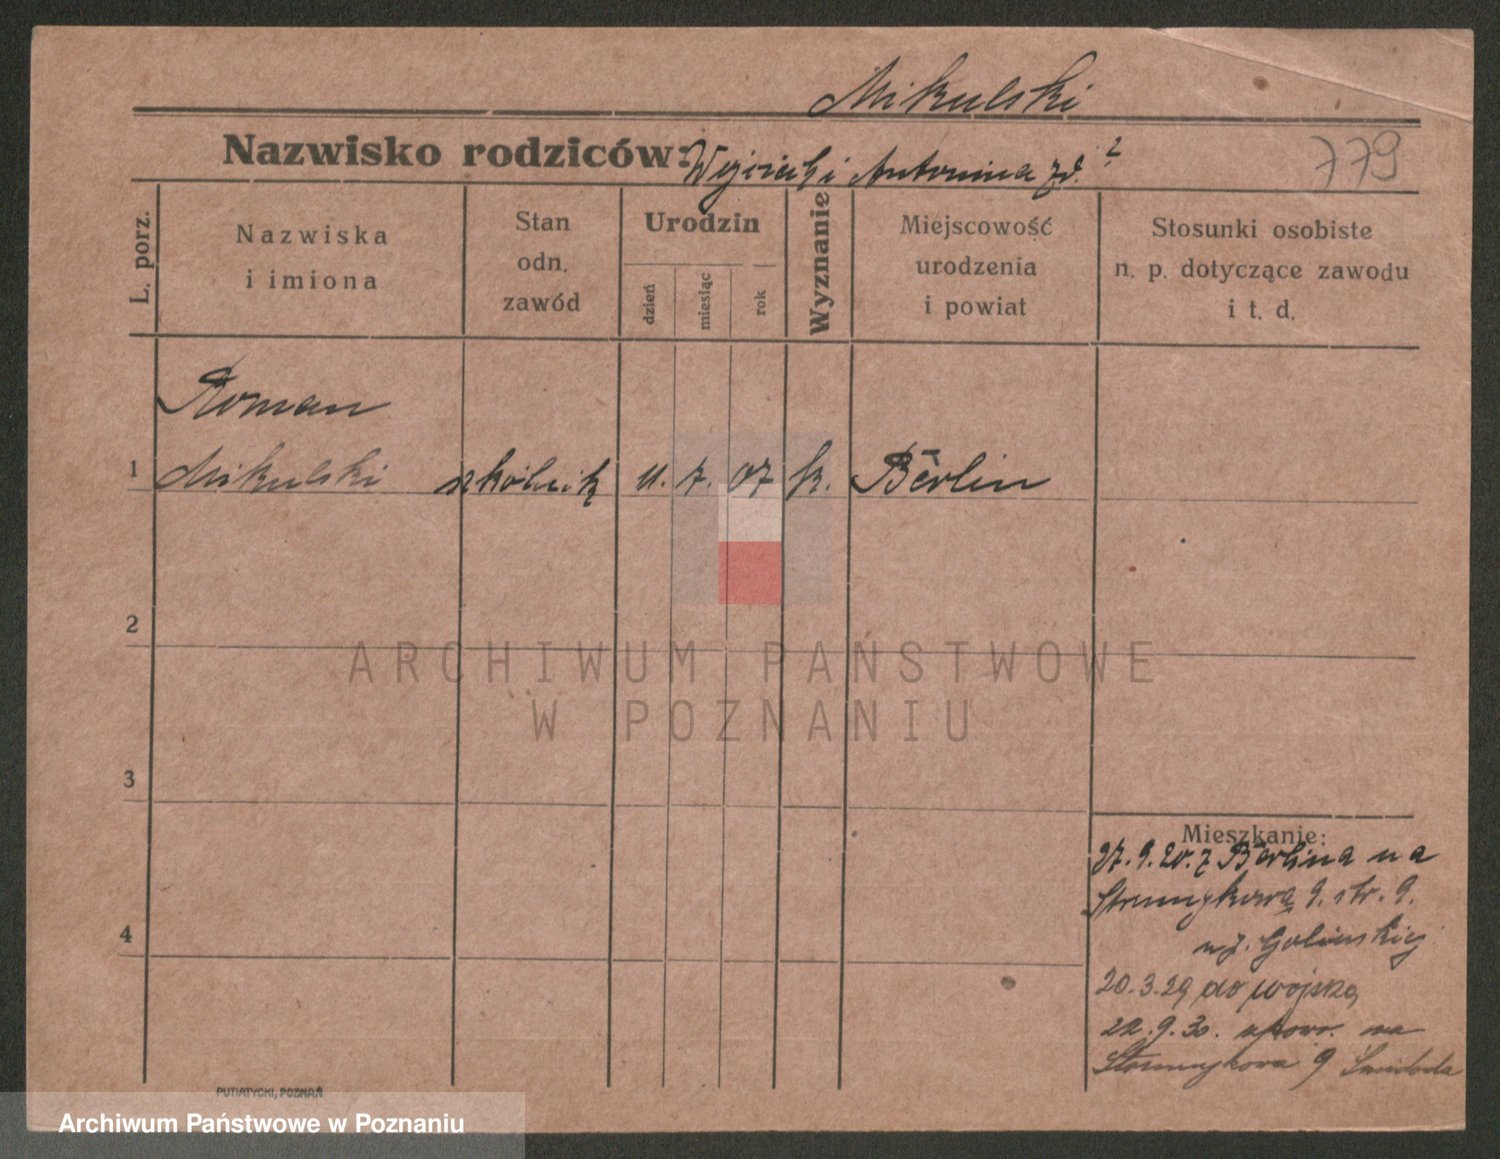 Mikulski
Nazwisko rodziców: Wojciech i Antonina zd. ?
779
L. porz.
Nazwiska
i imiona
Stan
odn.
zawód
Urodzin
dzień
miesiąc
rok
Wyznanie
Miejscowość
urodzenia
i powiat
Stosunki osobiste
n. p. dotyczące zawodu
i t. d.
Roman
1 Mikulski szkolnik 11. 7. 07 k. Berlin
2
ARCHIWUM PAŃSTWOWE
W POZNANIU
3
Mieszkanie:
27.9.20. z Berlina na
9. str. 9.
4
20.3.29 do wojska
22.9.30. na
9
PUTIATYCKI, POZNAŃ
Archiwum Państwowe w Poznaniu